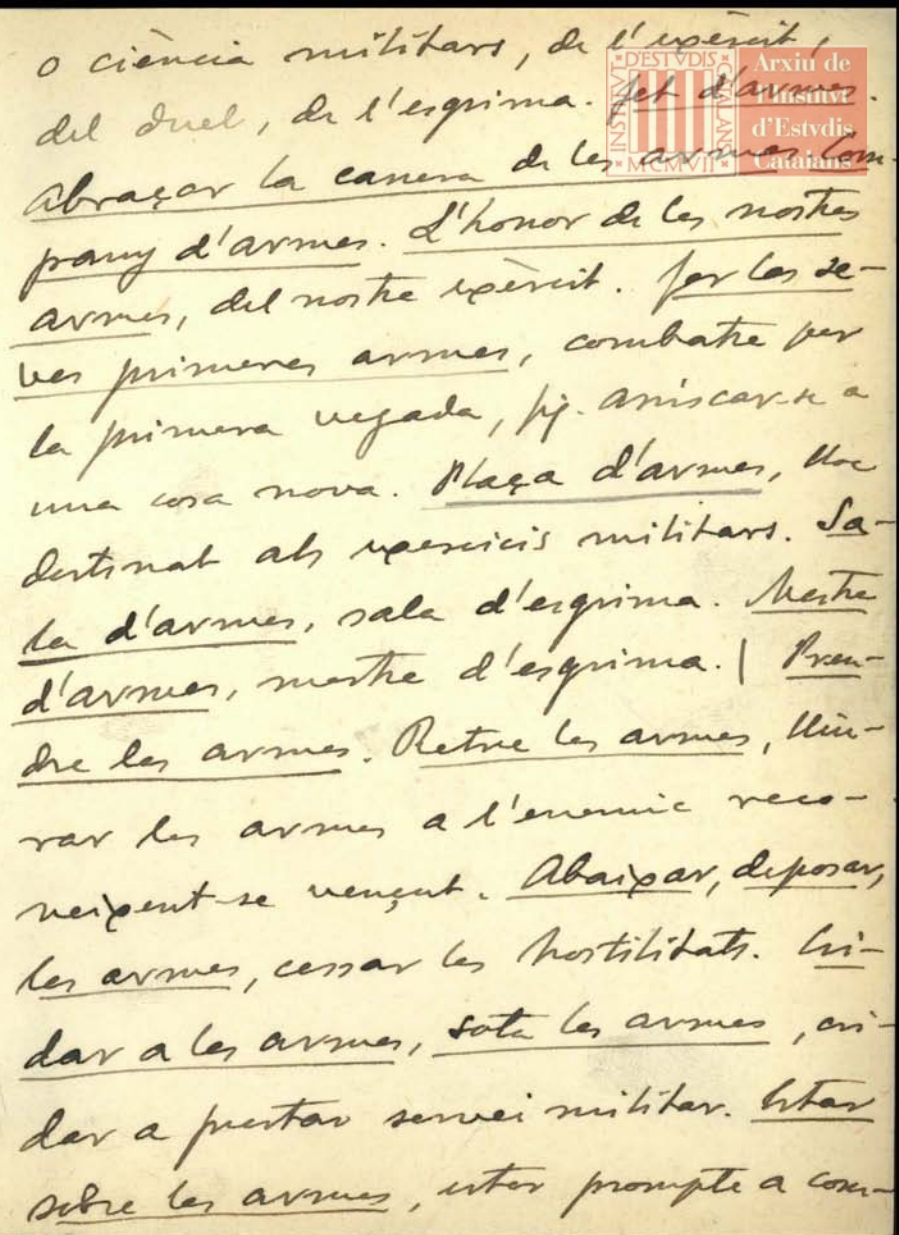 o ciència militars, de l'exèrcit,
del duel, de l'esgrima. Fet d'armes.
Abraçar la carrera de les armes. Com-
pany d'armes. L'honor de les nostres
armes, del nostre exèrcit. Fer les se-
ves primeres armes, combatre per
la primera vegada, fig. arriscar-se a
una cosa nova. Plaça d'armes, lloc
destinat als exercicis militars. Sa-
la d'armes, sala d'esgrima. Mestre
d'armes, mestre d'esgrima. | Pren-
dre les armes. Retre les armes, lliu-
rar les armes a l'enemic reco-
neixent-se vençut. Abaixar, deposar,
les armes, cessar les hostilitats. Cri-
dar a les armes, sota les armes, cri-
dar a prestar servei militar. Estar
sobre les armes, estar prompte a com-
INSTITVT D'ESTVDIS CATALANS
MCMVII
Arxiu de
l'Institvt
d'Estvdis
Catalans